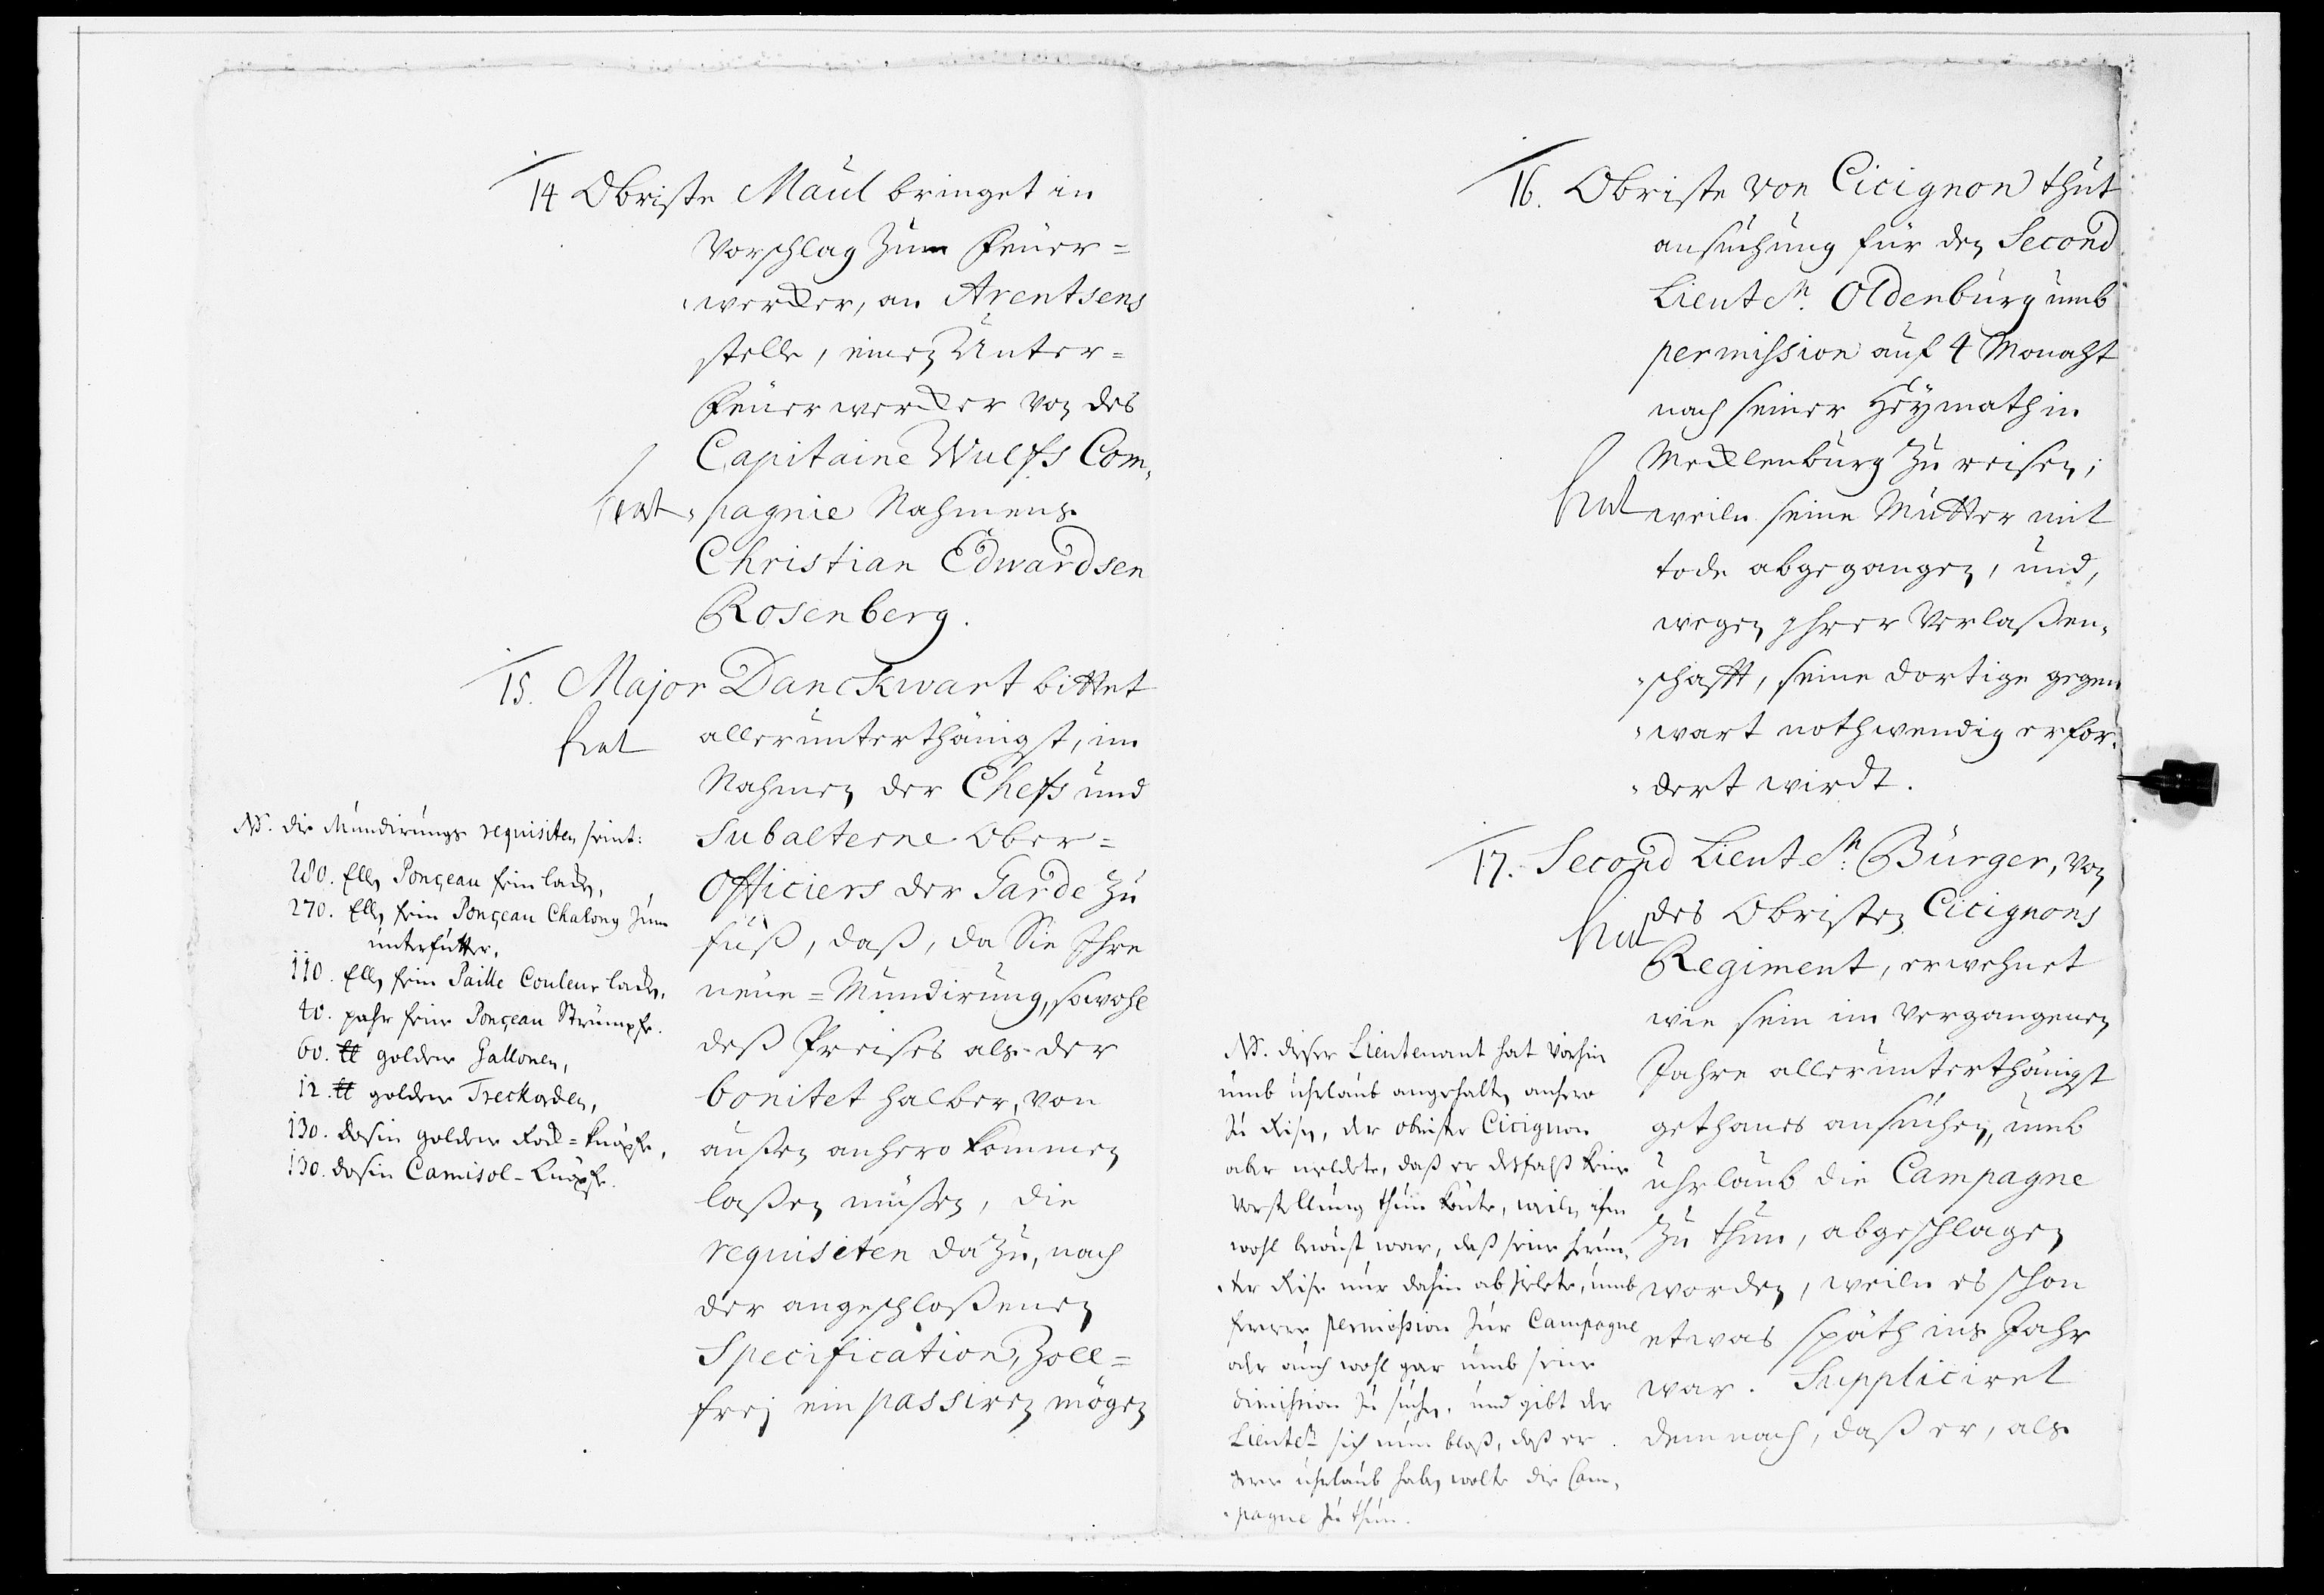 14 Obriste Maül bringet in
Vorschlag zum Feüer=
wercker, an Arentsens
stelle, einen Unter=
Feüerwercker von des
Capitaine Wulffs Com„
„pagnie Nahmens
Christian Edwardsen
Rosenberg.
15. Major Danckwart bittet
allerunterthänigst, im
Nahmen der Cheffs und
Subalterne Ober=
Officiers der Garde zu
fuß, daß, da Sie Ihre
neüe=Mundirung, sowohl
deß Preises als der
bonitet halber, von
außen anhero kommen
laßen müßen, die
requisiten dazu, nach
der angeschloßenen
Specification, Zoll=
frej ein passiren mögen
NB. die Mundirungs requisiten seint:
280. Ell, Ponçeau fein laken,
270. Ell, fein Ponçeau Chalong zum
unterfutter,
110. Ell, fein Paille Couleur laken,
40. pahr feine Ponçeau Strümpfe.
60. ℔ goldene Gallonen,
12. ℔ goldene Treckorden,
130. dosin goldene Rock=knöpfe,
130. dosin Camisol-knöpfe.
16. Obriste von Cicignon thut
ansuchung für den Second
Lieuten. Oldenburg umb
permission auf 4 Monaht
nach seiner Heÿmath in
Mecklenburg zu reisen;
weiln seine Mutter mit
tode abgegangen, und,
wegen Jhrer Verlaßen„
„schafft, seine dortige gegen
„wart nothwendig erfor„
„dert wirdt.
17. Second Lieuten. Bürger, von
des Obristen Cicignons
Regiment, erwehnet
wie sein im Vergangenen
Jahre allerunterthänigst
gethanes ansuchen, umb
uhrlaub die Campagne
zu thun, abgeschlagen
worden, weiln es schon
etwas späth ins Jahr
war. Suppliciret
demnach, daß er, als
NB. dieser Lieutenant hat Vorhin
umb uhrlaub angehalten, anhero
zu Reisen, der obrister Cicignon
aber meldete, daß er desfalß keine
Vorstellung thun könte, weiln ihm
wohl bewust war, daß seine herun„
„ter Reise nur dahin abzielete, umb
permission zur Campagne
oder auch wohl gar umb seine
dimission zu suchen, und gibt der
Lieuten. sich nun bloß, daß er
uhrlaub haben wolte die Cam„
„pagne zu thun.